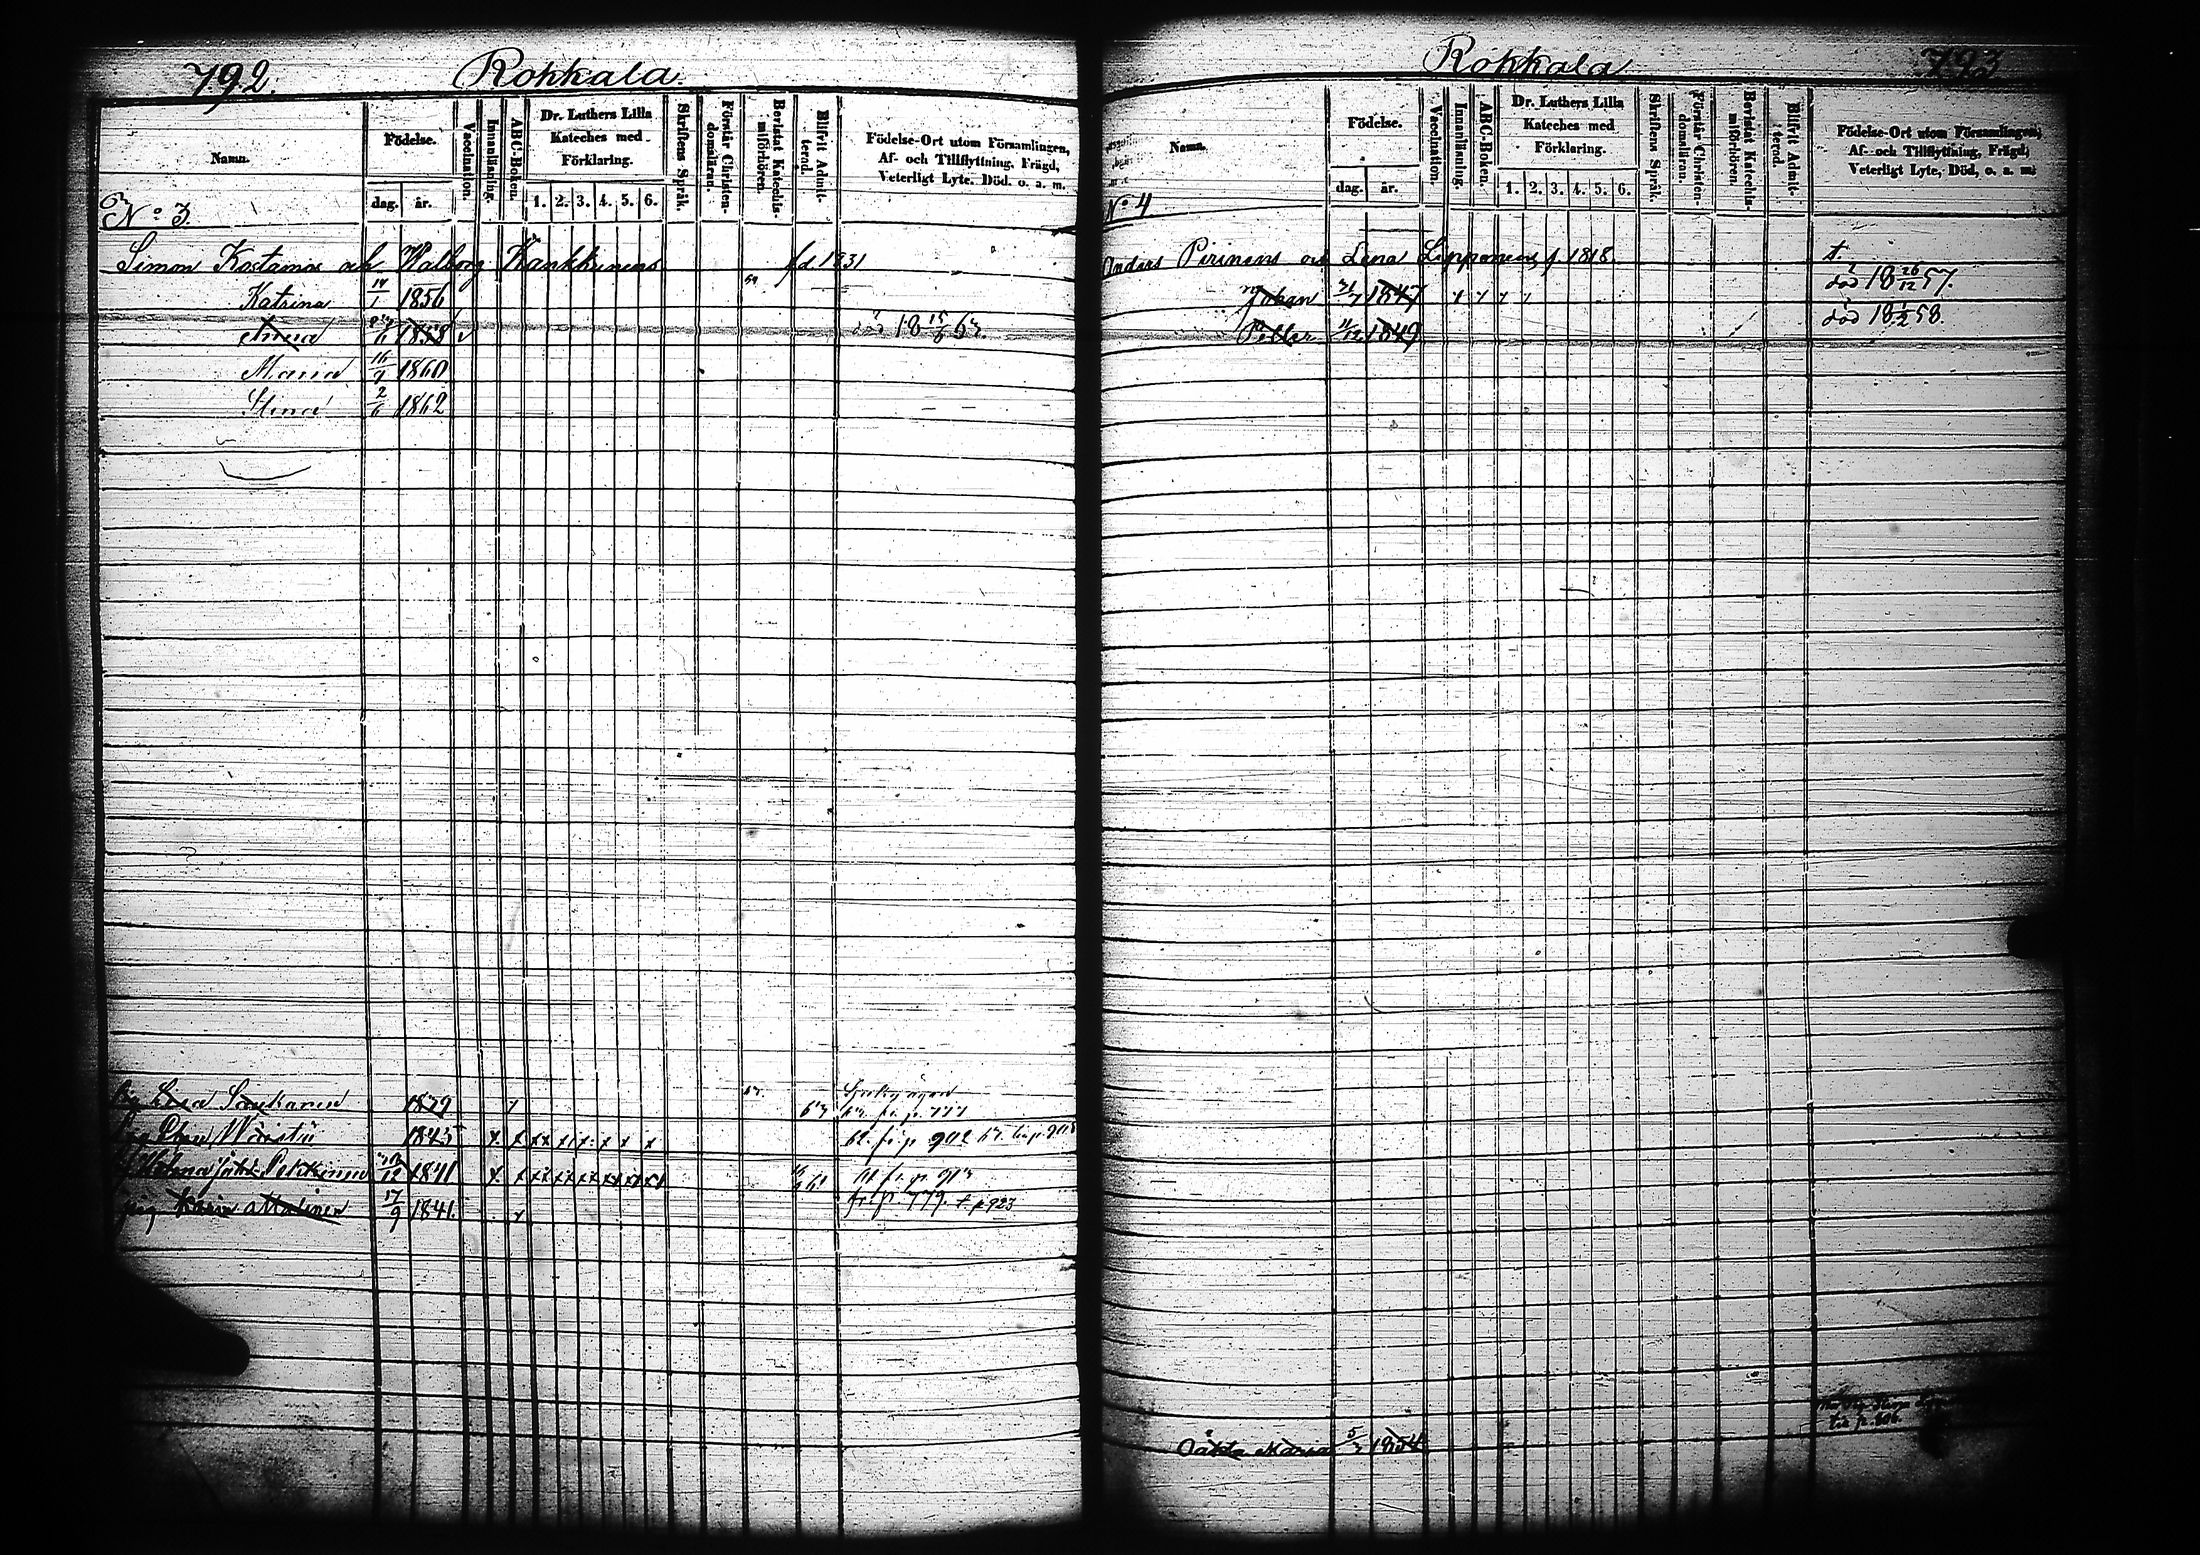 792. Rokkala.
Namn.
Födelse.
dag. år.
Vaccination.
Innanläsning.
ABC-Boken.
Dr. Luthers Lilla
Kateches med
Förklaring.
1. 2. 3. 4. 5. 6.
Skriftens Språk.
Förstår Christen-
domsläran.
Bevistat Katechis-
miförhören.
Blifvit Admit-
terad.
Födelse-Ort utom Församlingen,
Af- och Tillflyttning, Frägd,
Veterligt Lyte, Död, o. a. m.
No 3.
Simon Kostamos och Walborg Kankkunens fd. 1831
Katrina 14/1 1856
Anna 1858 död 18 15/6 63.
Maria 16/9 1860
Stina 2/6 1862
Lisa 1829 63 fr. p. 777
1845 62. fr. p 902
Helena Pekkinen 1841
pig Karin Matinen 17/9 1841. fr. p. 779. t. p 923
Rokkala 793
Namn.
Födelse.
dag. år.
Vaccination.
Innanläsning.
ABC-Boken.
Dr. Luthers Lilla
Kateches med
Förklaring.
1. 2. 3. 4. 5. 6.
Skriftens Språk.
Förstår Christen-
domsläran.
Bevistat Katechis-
miförhören.
Blifvit Admit-
terad.
Födelse-Ort utom Församlingen,
Af- och Tillflyttning, Frägd,
Veterligt Lyte, Död, o. a. m.
No 4
Anders Pirinens och Lena Lipponens f. 1818. t.
Johan 21/7 1847 död 18 26/12 57.
Petter 11/12 1849 död 18 1/2 58.
Maria 1854